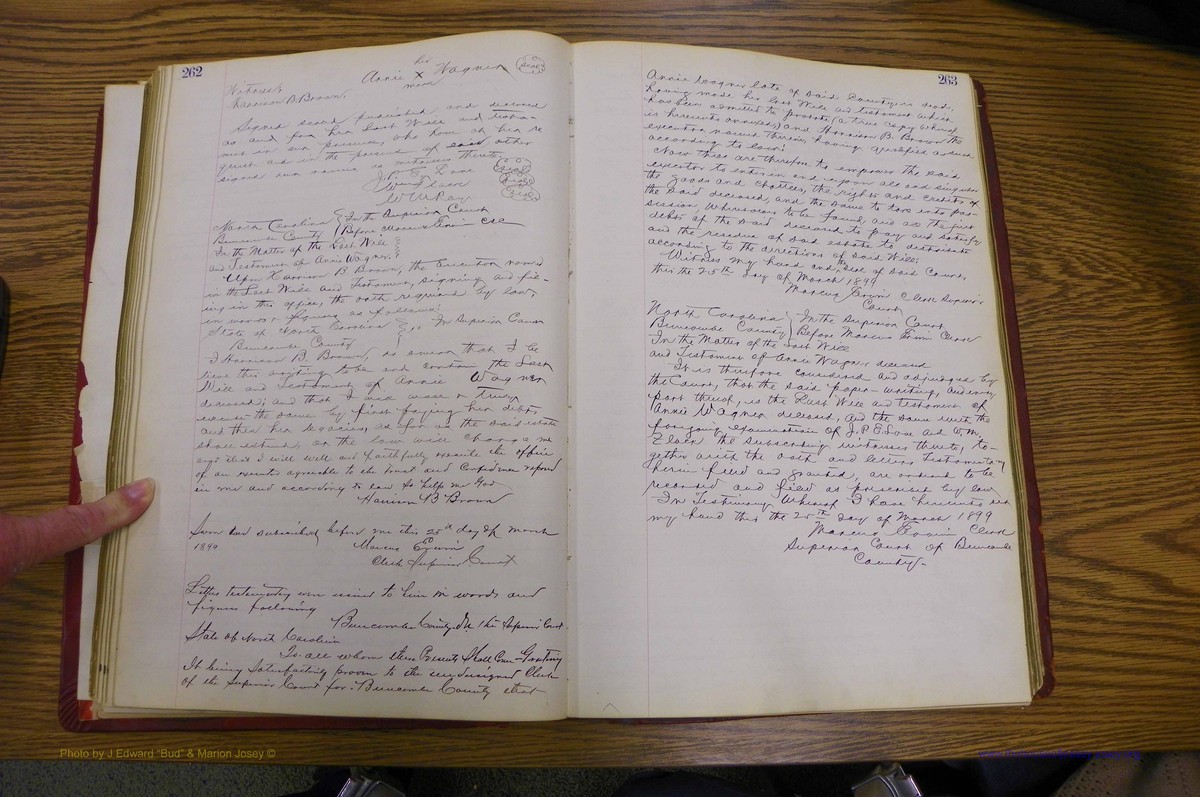 262
her
Annie x Wagner (Seal)
mark
Witness:
Harrison B. Brown.
Signed sealed published and declared
as and for her Last Will and testa-
ment in our presence, who hom at her re
quest and in the presence of each other
signed our names as witnesses thereto,
J. P. E. Love (Seal)
Wm (Seal)
W W Ray (Seal)
North Carolina } In the Superior Court
Buncombe County } Before Marcus Erwin CSC
In the Matter of the Last Will
and Testament of Annie Wagner.
Upon Harrison B Brown, the Executor named
in the Last Will and Testament, signing and fil-
ing in this office, the oath required by law,
in words & figures as follows:
State of North Carolina } SS In Superior Court
Buncombe County
I Harrison B. Brown, do swear that I be
lieve this writing to be and contain the Last
Will and Testament of Annie Wagner
deceased; and that I will well & truly
execute the same by first paying her debts
and then her legacies, as far as the said estate
shall extend, or the law will charge me
and that I will well and faithfully execute the office
of an executor agreeable to the trust and confidence reposed
in me and according to law so help me God
Harrison B Brown
Sworn and subscribed before me this 25 day of March
1899
Marcus Erwin
Clerk Superior Court
Letters testamentary were issued to him in words and
figures following
Buncombe County In the Superior Court.
State of North Carolina
To all whom these Presents Shall Come - Greeting
It being Satisfactorily proven to the undersigned Clerk
of the Superior Court for Buncombe County that
263
Annie Wagner late of said County, is dead,
having made her last Will and testament which
has been admitted to probate, (a true copy whereof
is hereunto annexed) and Harrison B. Brown the
executor named therein, having qualified as such,
according to law:
Now these are therefore to empower the said
executor to enter in and upon all and singular
the goods and chattels, the rights and credits of
the said deceased, and the same to take into pos-
session, wheresoever to be found, and as the just
debts of the said deceased to pay and satisfy
and the residue of said estate to distribute
according to the directions of said Will;
Witness my hand and the Seal of said Court,
this the 25th day of March 1899
Marcus Erwin Clerk Superior
Court
North Carolina } In the Superior Court
Buncombe County } Before Marcus Erwin Clerk
In the Matter of the Last Will
and Testament of Annie Wagner, deceased
It is therefore considered and adjudged by
the Court, that the said paper-writing, and every
part thereof, is the Last Will and testament of
Annie Wagner deceased, and the same with the
foregoing examination of J. P. E. Love and W. M.
the subscribing witnesses thereto, to-
gether with the oath and letters Testamentary
herein filed and granted, are ordered to be
recorded and filed as prescribed by law
In Testimony Whereof I have hereunto set
my hand this the 25th day of March 1899
Marcus Erwin Clerk
Superior Court of Buncombe
County-
Photo by J Edward "Bud" & Marion Josey ©